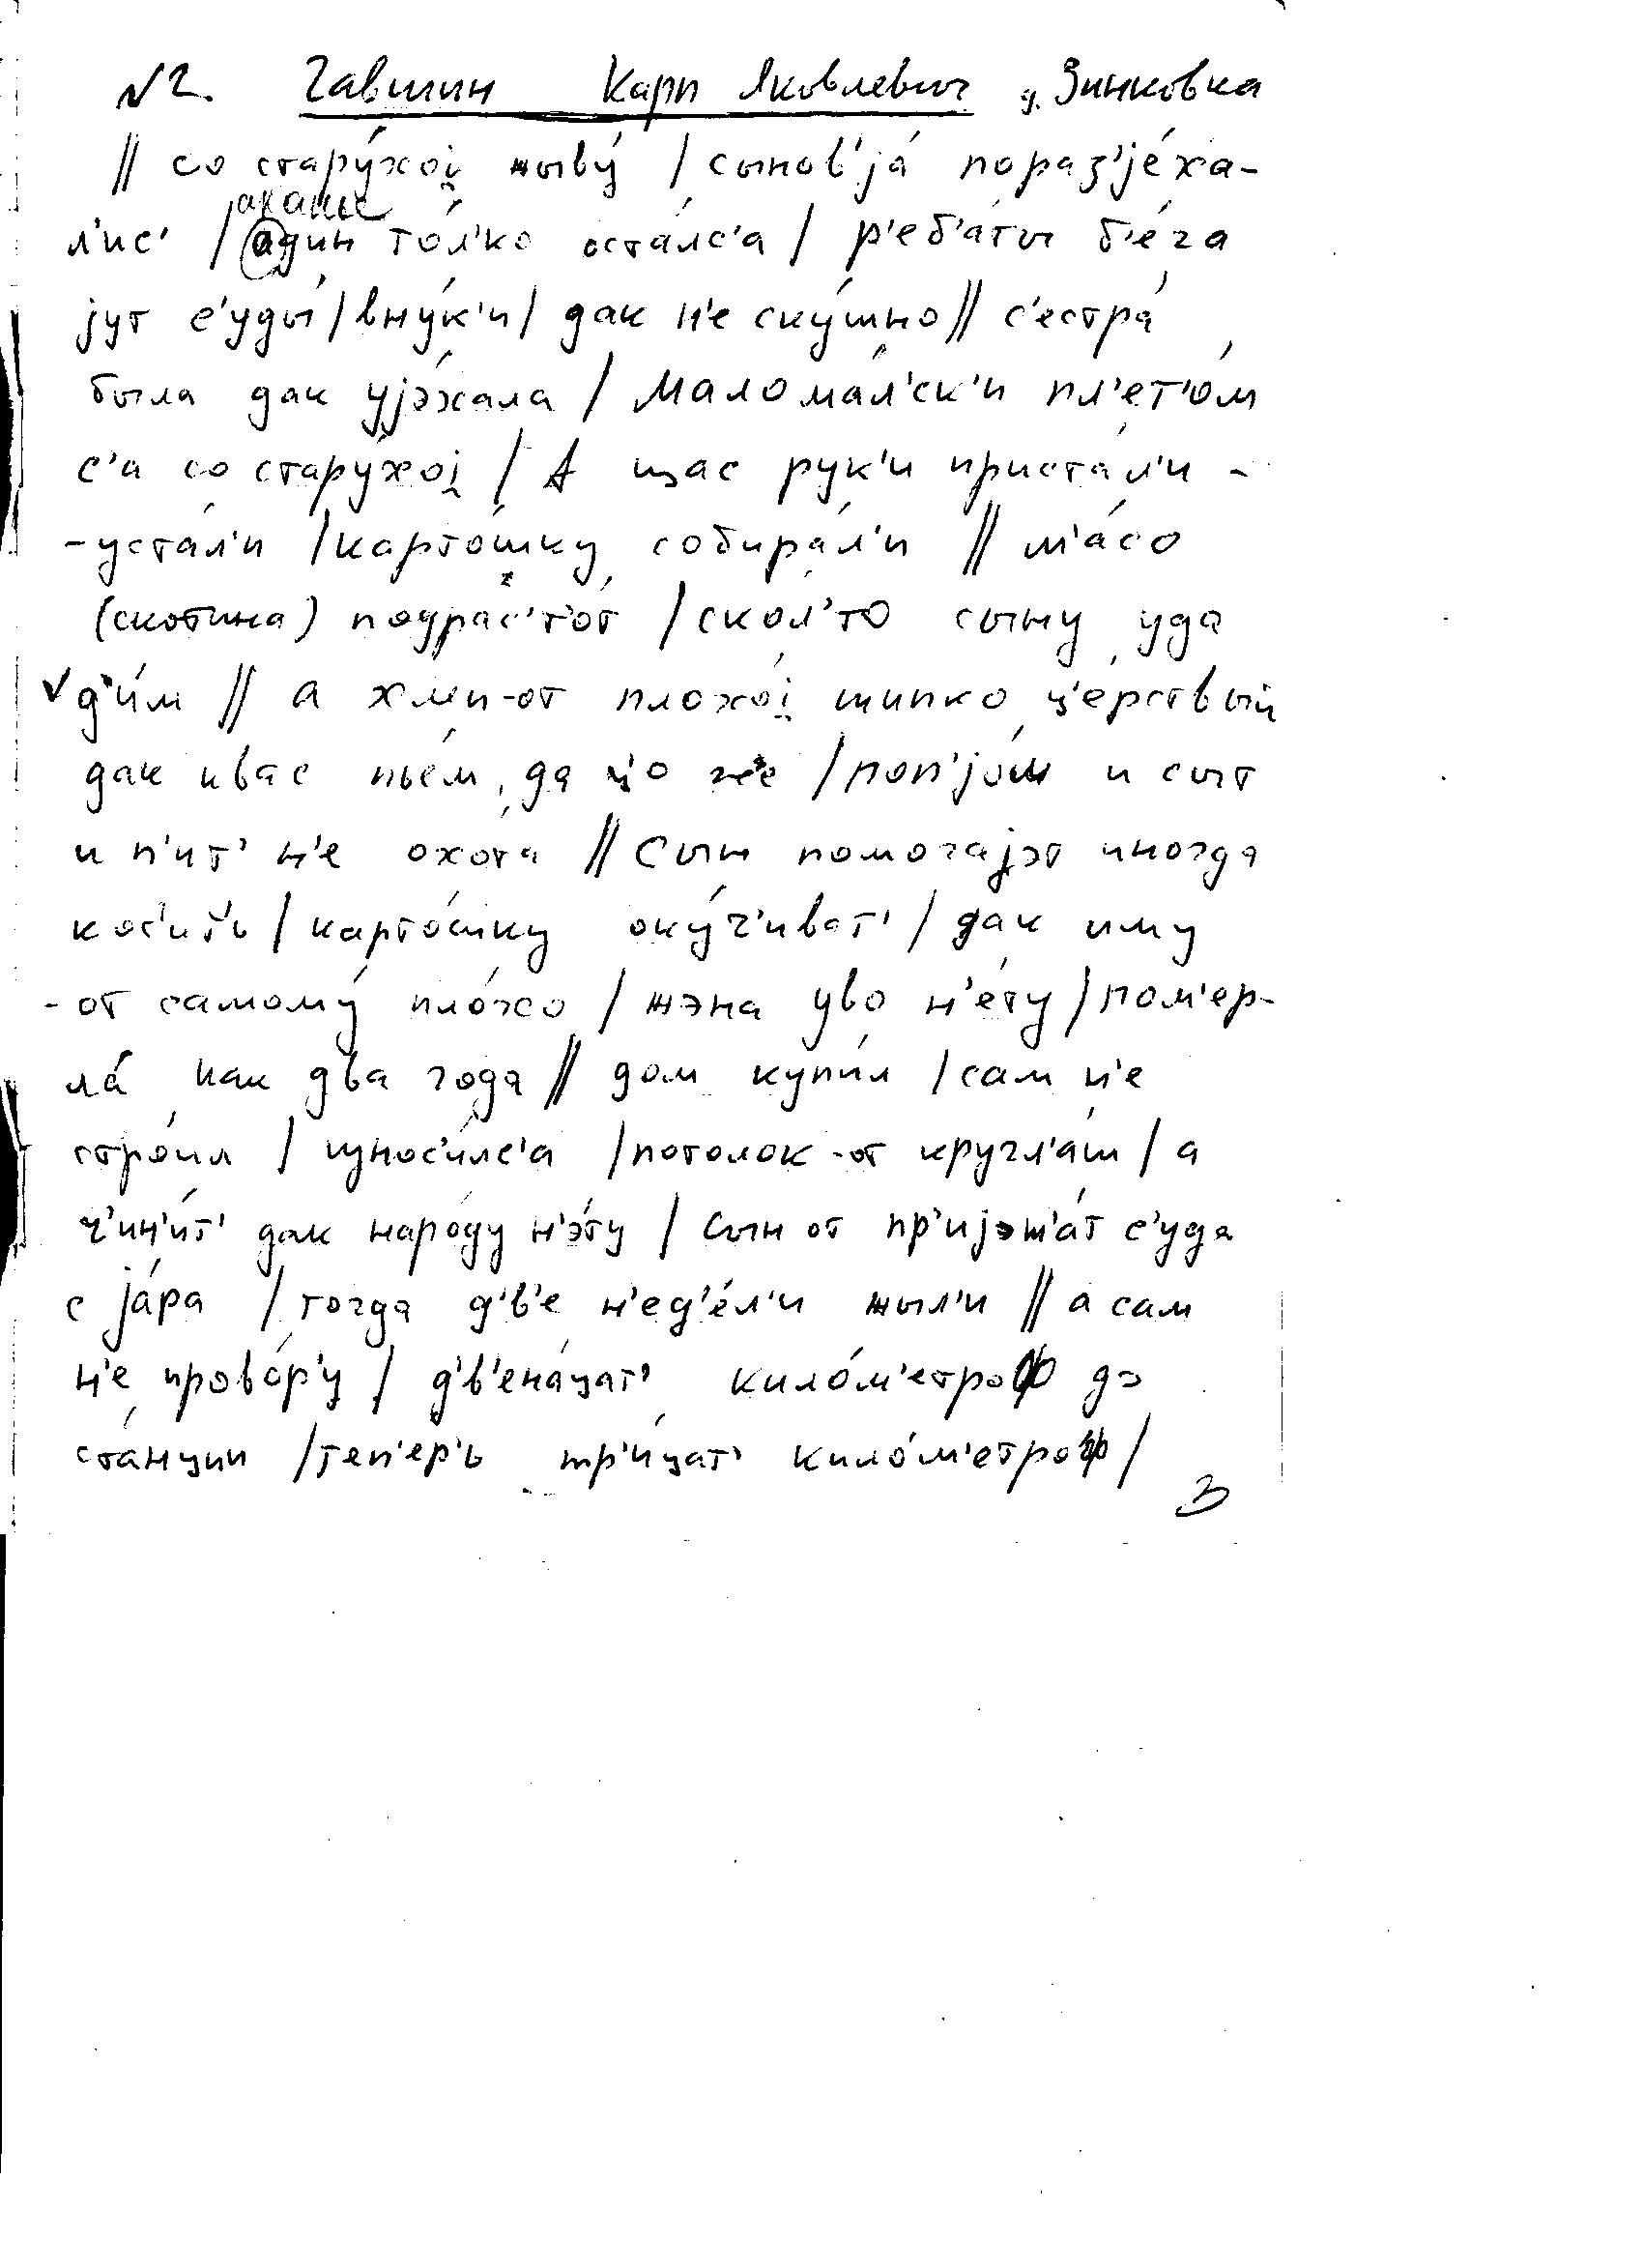 №2. Гавшин Карп Яковлевич д. Зинковка
// со стару́хоį жыву́ / сынов'jа́ пораз'jе́ха-
л'ис' / один то́л'ко оста́лс'а / р'еб'а́ты б'е́га
аканье
jут с'уды́ / вну́к'и / дак н'е ску́шно // с'естра́
была дак уjэ́хала / Малома́л'ск'и пл'ет'о́м
с'а со стару́хоį / А щас рук'и приста́л'и -
- уста́л'и / карто́шку собира́л'и // м'а́со
(скотина) подрас'т'о́т / скол'то сыну уда
д'и́м // а хл'и-от плохо́į шипко ц'е́рствый
дак квас пье́м, да цо же / поп'jо́м и сыт
и п'ит' н'е охота // Сын помогаjэт иногда
кос'ить / карто́шку оку́ч'иват' / дак иму
- от самому́ пло́хо / жэна уво н'е́ту / пом'ер-
ла́ как два года // дом купи́л / сам н'е
стро́ил / износ'и́лс'а / потолок-от кругл'а́ш / а
ч'ин'и́т' дак наро́ду н'э́ту / Сын от пр'иjэж'а́т с'уда
с jа́ра / тогда д'в'е н'ед'е́л'и жыл'и // а сам
н'е прово́р'у / д'в'ена́цат' кило́м'етроф до
ста́нции / теп'ер'ь тр'и́цат' кило́м'етроф /
3